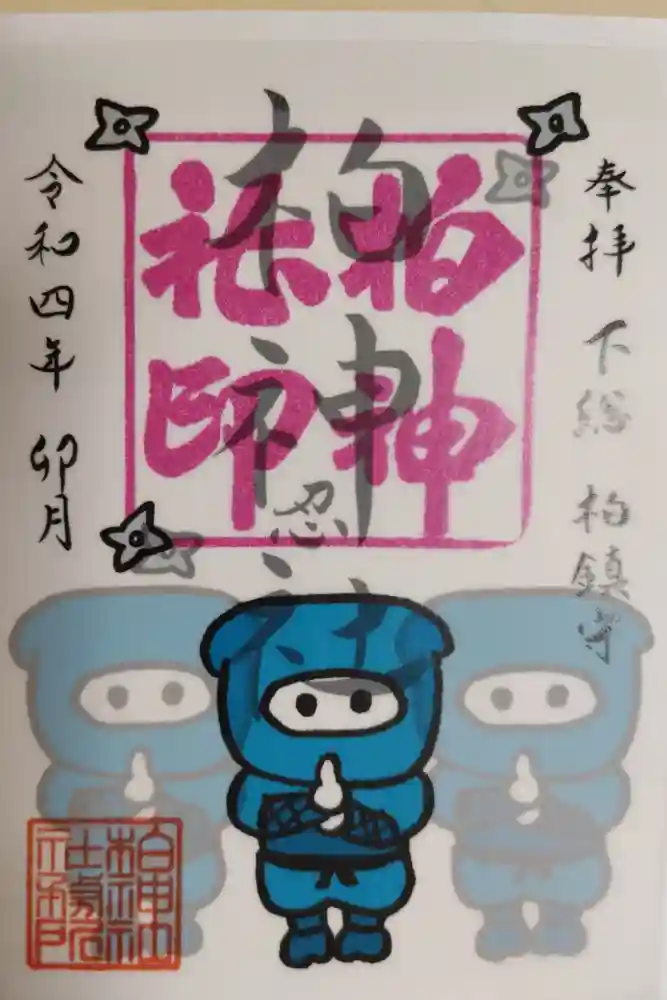 奉拝 下総 柏鎮守
柏神社
柏神
社印
忍
令和四年 卯月
柏神社
社務所